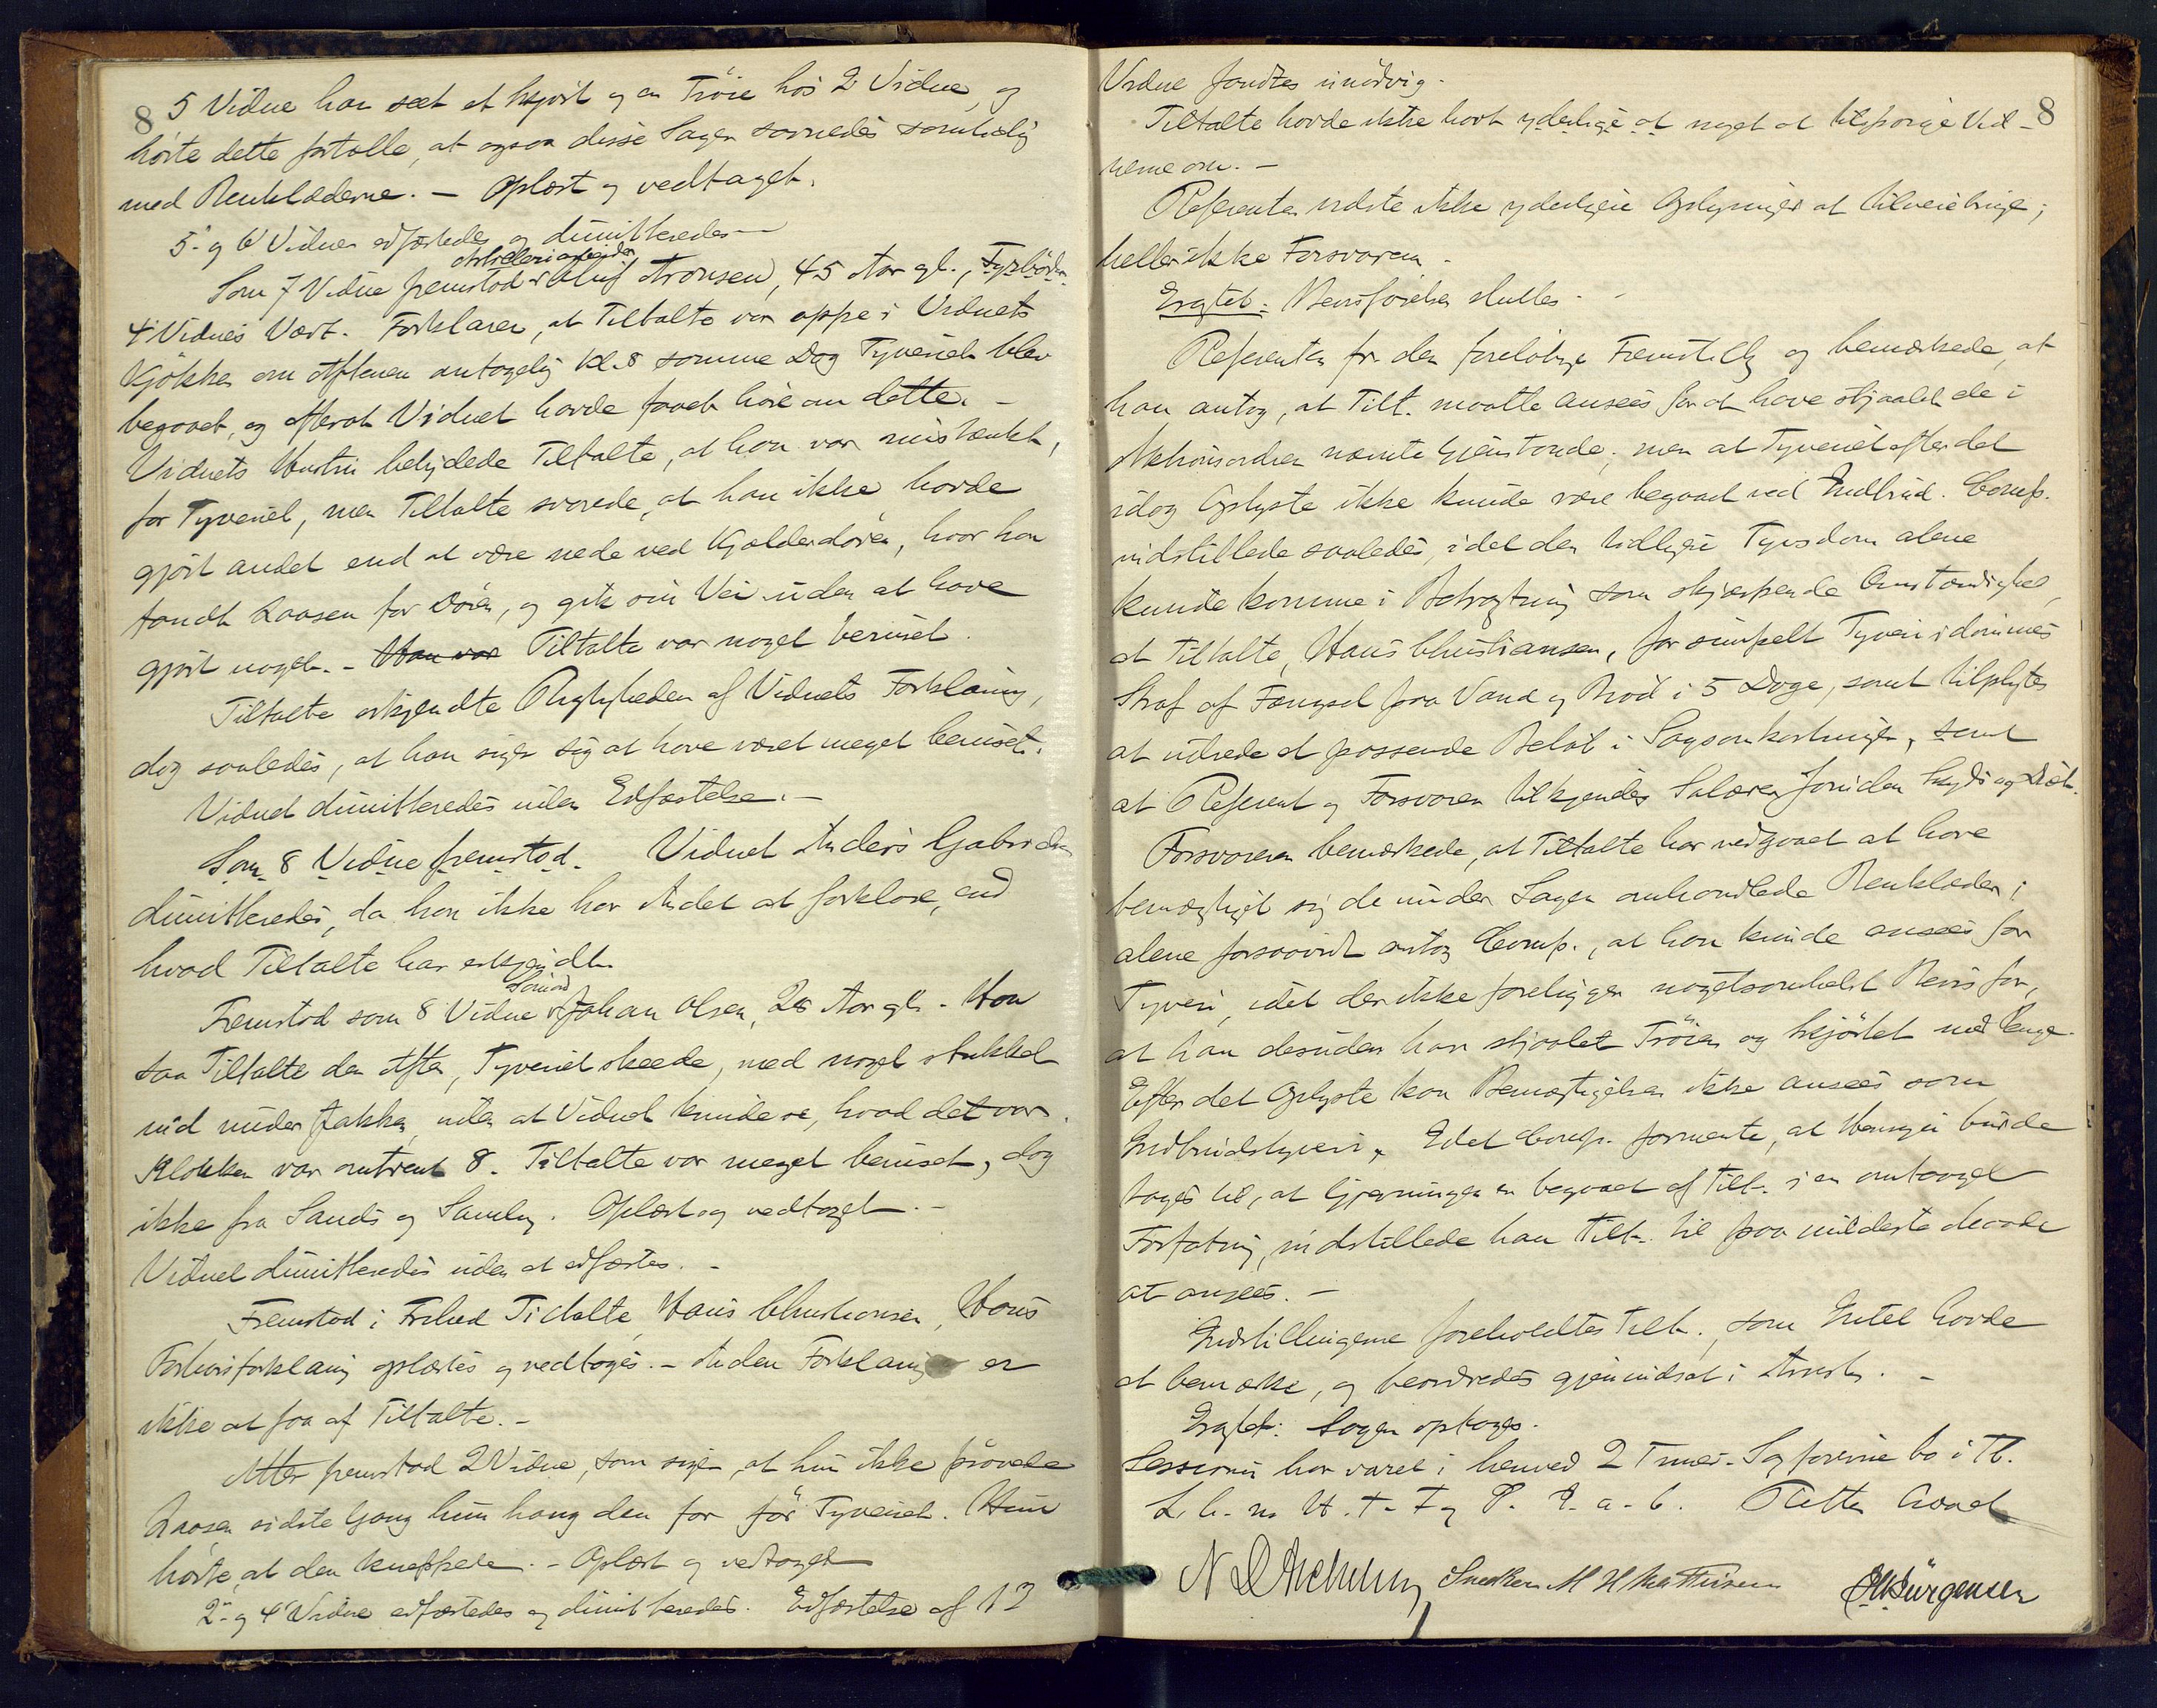 8 5 Vidne har seet et Skjört og en Tröie hos 2 Vidne, og
hörte dette fortælle, at ogsaa disse Sager savnedes samtidig
med Benklæderne. — Oplæst og vedtaget.
5. og 6 Vidner edfæstedes og dimitteredes —
Artilleriarbeider
Som 7 Vidne fremstod Oluf Aronsen, 45 Aar gl.,
4 Vidnes Vært. Forklarer, at Tiltalte var oppe i Vidnets
Kjökken om Aftenen antagelig Kl. 8 samme Dag Tyveriet blev
begaaet, og efterat Vidnet havde faaet höre om dette. —
Vidnets Hustru betydede Tiltalte, at han var mistænkt,
for Tyveriet, men Tiltalte svarede, at han ikke havde
gjört andet end at være nede ved Kjælderdören, hvor han
fandt Laasen for Dören, og gik sin Vei uden at have
gjört noget. - Han var Tiltalte var noget beruset.
Tiltalte erkjendte Rigtigheden af Vidnets Forklaring,
dog saaledes, at han siger sig at have været meget beruset.
Vidnet dimitteredes uden Edfæstelse. —
Som 8 Vidne fremstod. Vidnet Anders Gabrielsen
dimitteredes, da han ikke har Andet at forklare, end
hvad Tiltalte har erkjendt.
Sömand
Fremstod som 8 Vidne Johan Olsen, 28 Aar gl. - Han
saa Tiltalte den Aften, Tyveriet skeede, med noget stukket
ind under Jakken, uden at Vidnet kunde se, hvad det var.
Klokken var omtrent 8. Tiltalte var meget beruset, dog
ikke fra Sands og Samling. Oplæst og vedtaget. -
Vidnet dimitteredes uden at edfæstes. -
Fremstod i Frihed Tiltalte, Hans Christiansen, Hans
Forhörsforklaring oplæstes og vedtoges. - Anden Forklaring er
ikke at faa af Tiltalte. -
Atter fremstod 2 Vidne, som siger, at hun ikke prövede
Laasen sidste Gang hun hang den for för Tyveriet. Hun
hörte, at den kneppede. - Oplæst og vedtaget
2. og 4 Vidne edfæstedes og dimitteredes. Edfæstelse af 1 3
Vidne fandtes unödvig.
Tiltalte havde ikke havt yderligere at noget at tilspörge Vid- 8
nerne om. —
Referenten vidste ikke yderligere Oplysninger at tilveiebringe;
heller ikke Forsvareren.
Eragtet: Bevisförelsen sluttes.
Referenten for den foreløbige Fremstilling og bemærkede, at
han antog, at Tilt. maatte ansees for at have stjaalet de i
Aktionsordren nævnte Gjenstande; men at Tyveriet efter det
idag Oplyste ikke kunde være begaaet ved Indbrud. Comp.
indstillede saaledes, idet den tidligere Tyvsdom alene
kunde komme i Betragtning som skjærpende Omstændighed,
at Tiltalte, Hans Christiansen, for simpelt Tyveri idömmes
Straf af Fængsel paa Vand og Bröd i 5 Dage, samt tilpligtes
at udrede et passende Belöb i Sagsomkostninger, samt
at Referent og Forsvarer tilkjendes Salærer foruden Skyds og Diæt.
Forsvareren bemærkede, at Tiltalte har vedgaaet at have
bemægtiget sig de under Sagen omhandlede Benklæder;
alene forsaavidt antog Comp., at han kunde ansees for
Tyveri, idet der ikke foreligger nogetsomhelst Bevis for,
at han desuden har stjaalet Tröien og Skjörtet med Penge.
Efter det Oplyste kan Bemægtigelsen ikke ansees som
Indbrudstyveri. Idet Comp. formente, at Hensyn burde
tages til, at Gjerningen er begaaet af Tilt. i en omtaaget
Forfatning, indstillede han Tilt. til paa mildeste Maade
at ansees. —
Indstillingerne foreholdtes Tilt., som Intet havde
at bemærke, og beordredes gjenindsat i Arrest. -
Eragtet: Sagen optages.
Sessionen har varet i henved 2 Timer.
Retten hævet